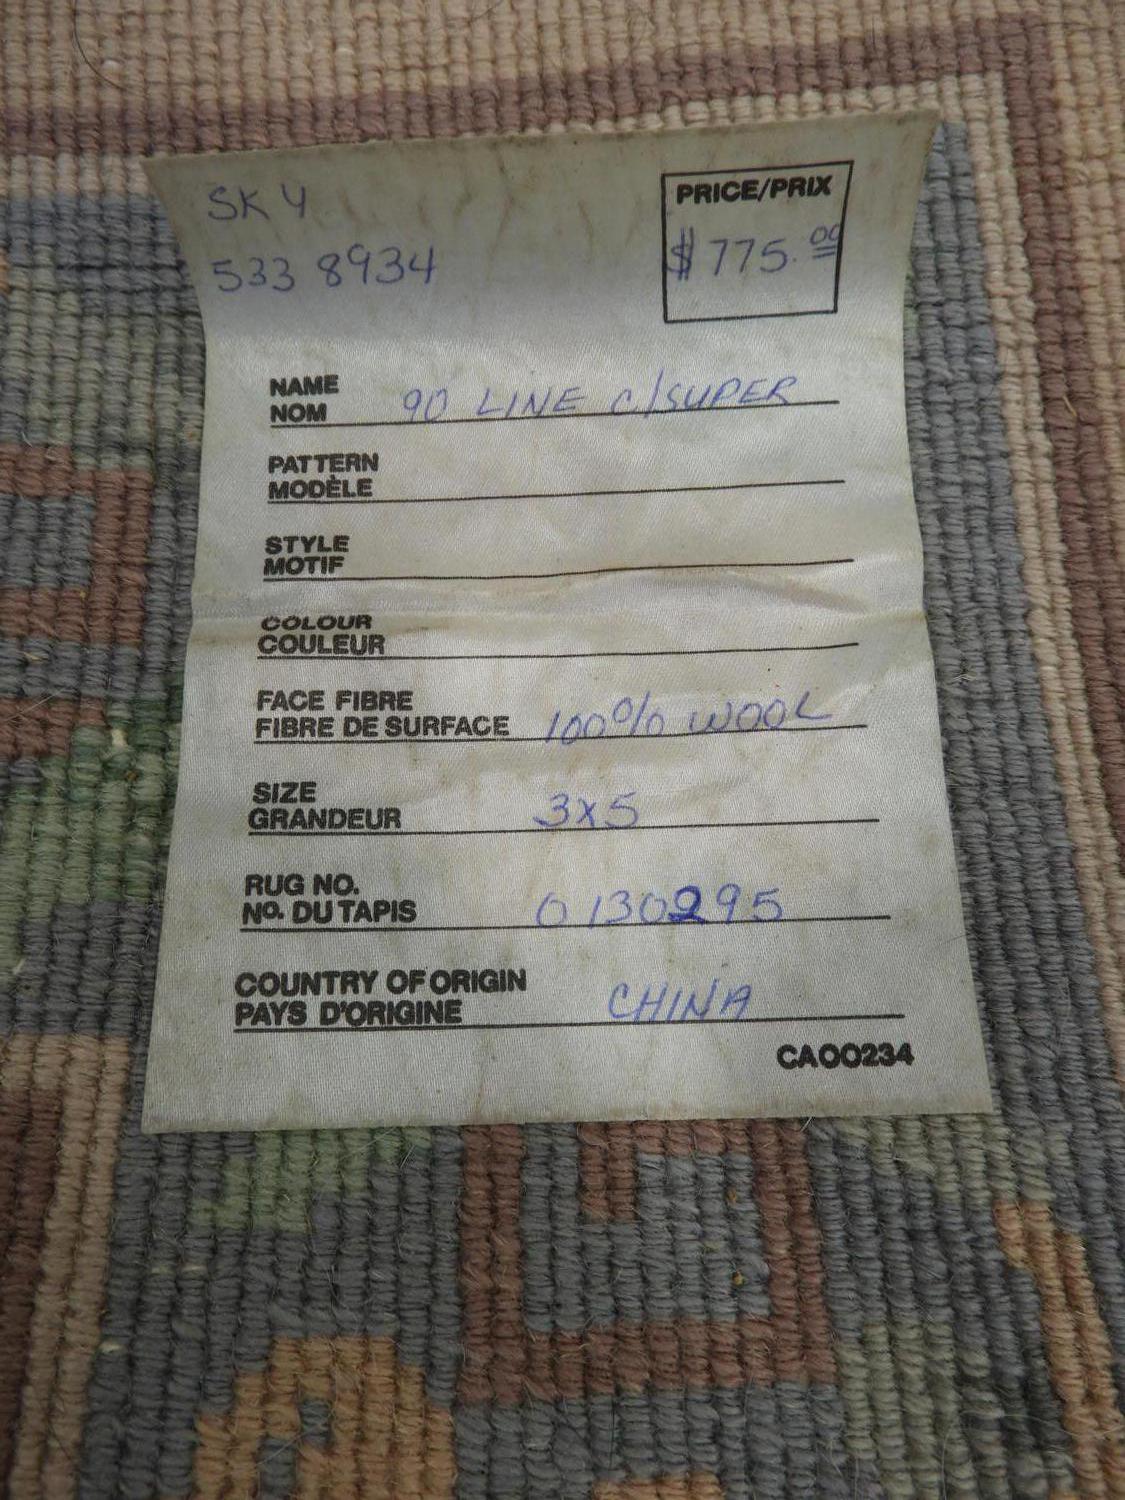 SK 4
533 8934
PRICE/PRIX
$775.00
NAME
NOM 90 LINE C/SUPER
PATTERN
MODÈLE
STYLE
MOTIF
COLOUR
COULEUR
FACE FIBRE
FIBRE DE SURFACE 100% WOOL
SIZE
GRANDEUR 3x5
RUG NO.
NO. DU TAPIS 0130295
COUNTRY OF ORIGIN
PAYS D'ORIGINE CHINA
CA00234